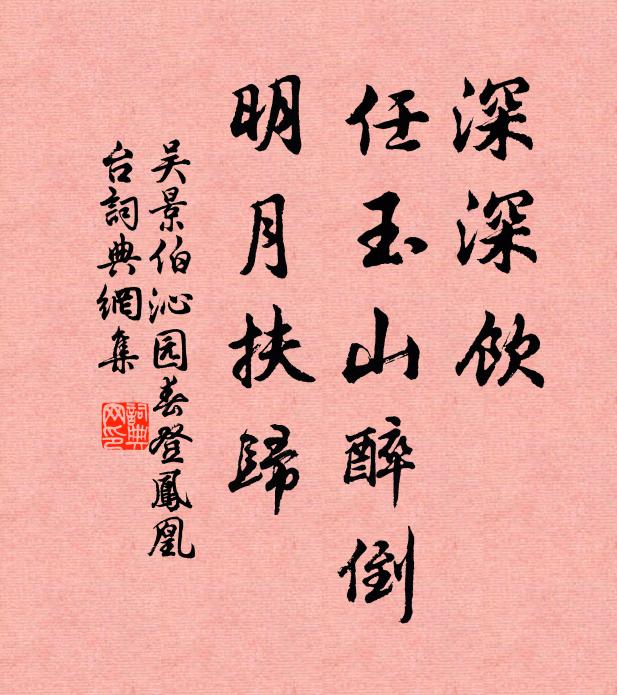 深深饮
任玉山醉倒
明月扶歸
吴景伯沁园春登鳳凰
台詞典網集
詞典
网印